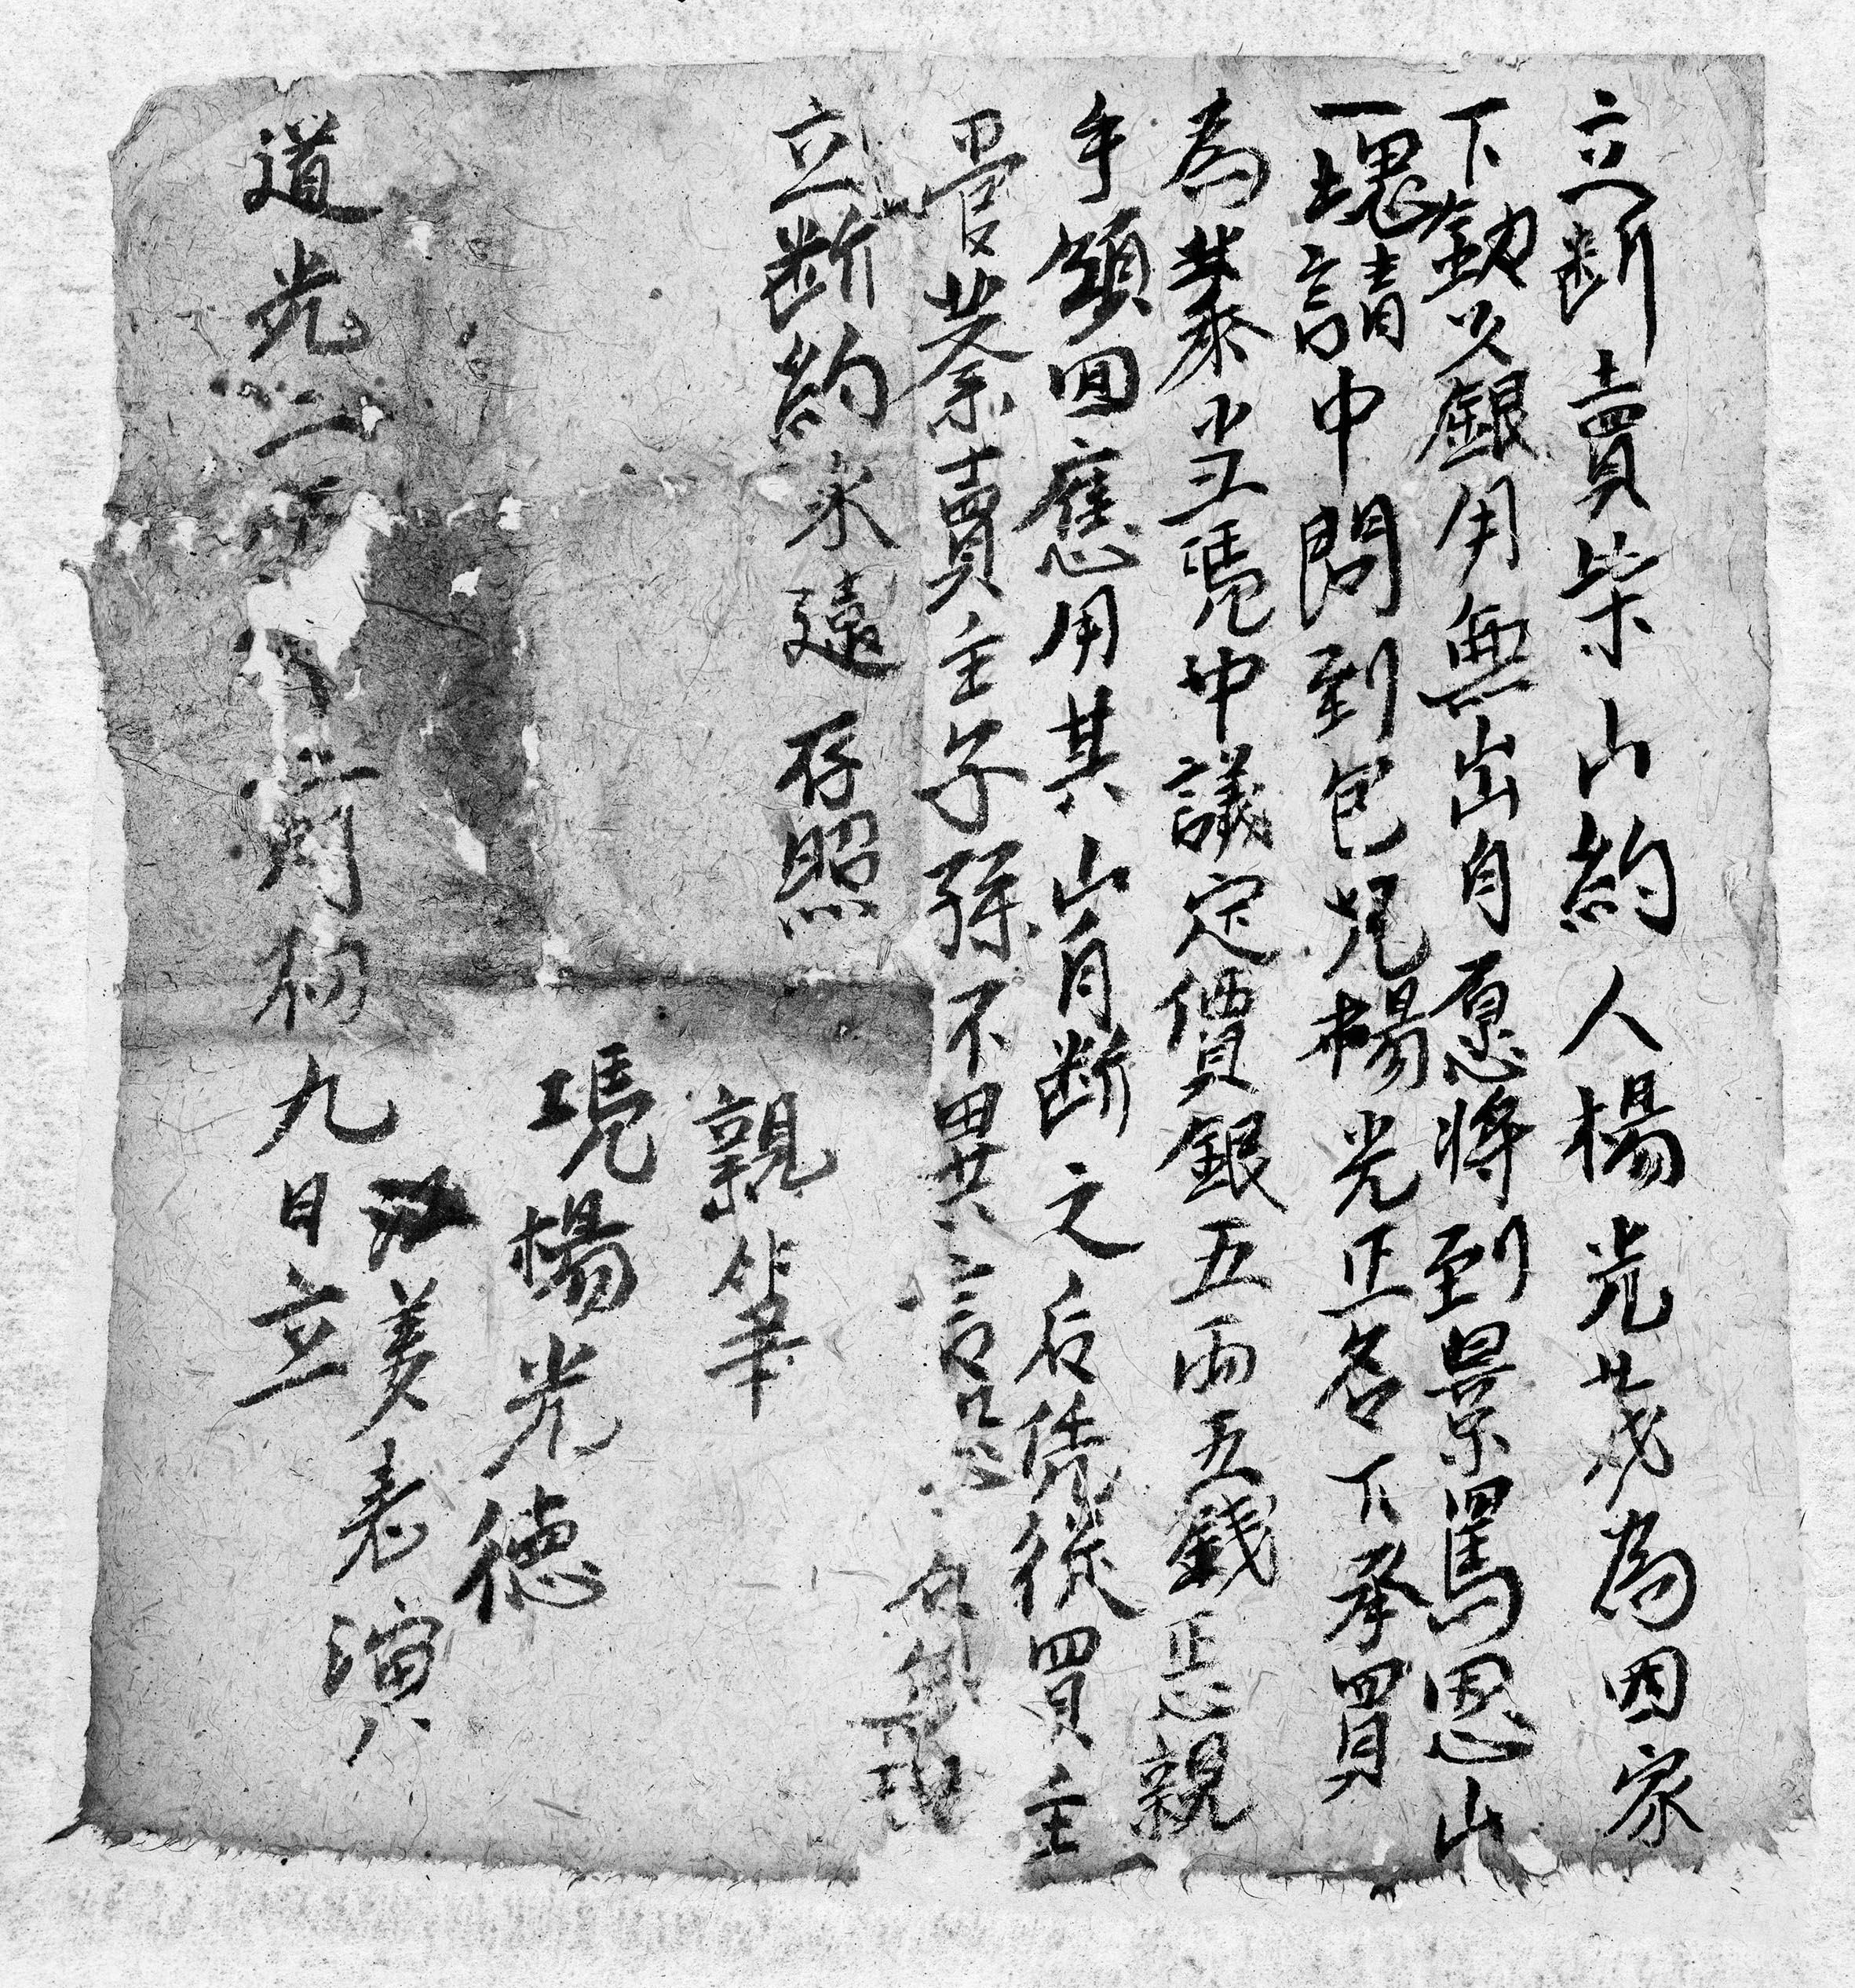 立断賣柴山約人楊光茂為因家
下缺少銀用無出自愿將到景罵恩山
一塊請中問到包兄楊光正名下承買
為業當凴中議定價銀五両五錢正親
手領回應用其山自断之后凭從買主
管業賣主子孫不異言恐右無憑
立断約永遠存照
親筆
凴楊光德
美老演
道光二十二月初九日立